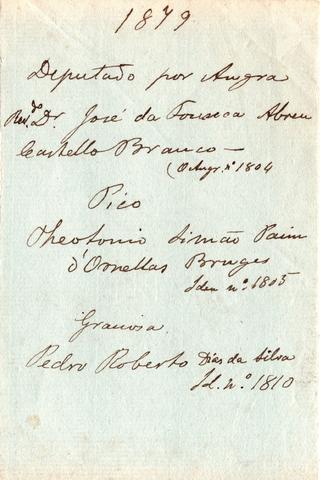 1879
Deputado por Angra
Rev.º Dr. José da Fonseca Abreu
Castello Branco —
(O Angr. n.º 1804
Pico
Theotonio Simão Paim
d'Ornellas Bruges
Idem n.º 1805
Graciosa
Pedro Roberto Dias da Silva
Id. n.º 1810